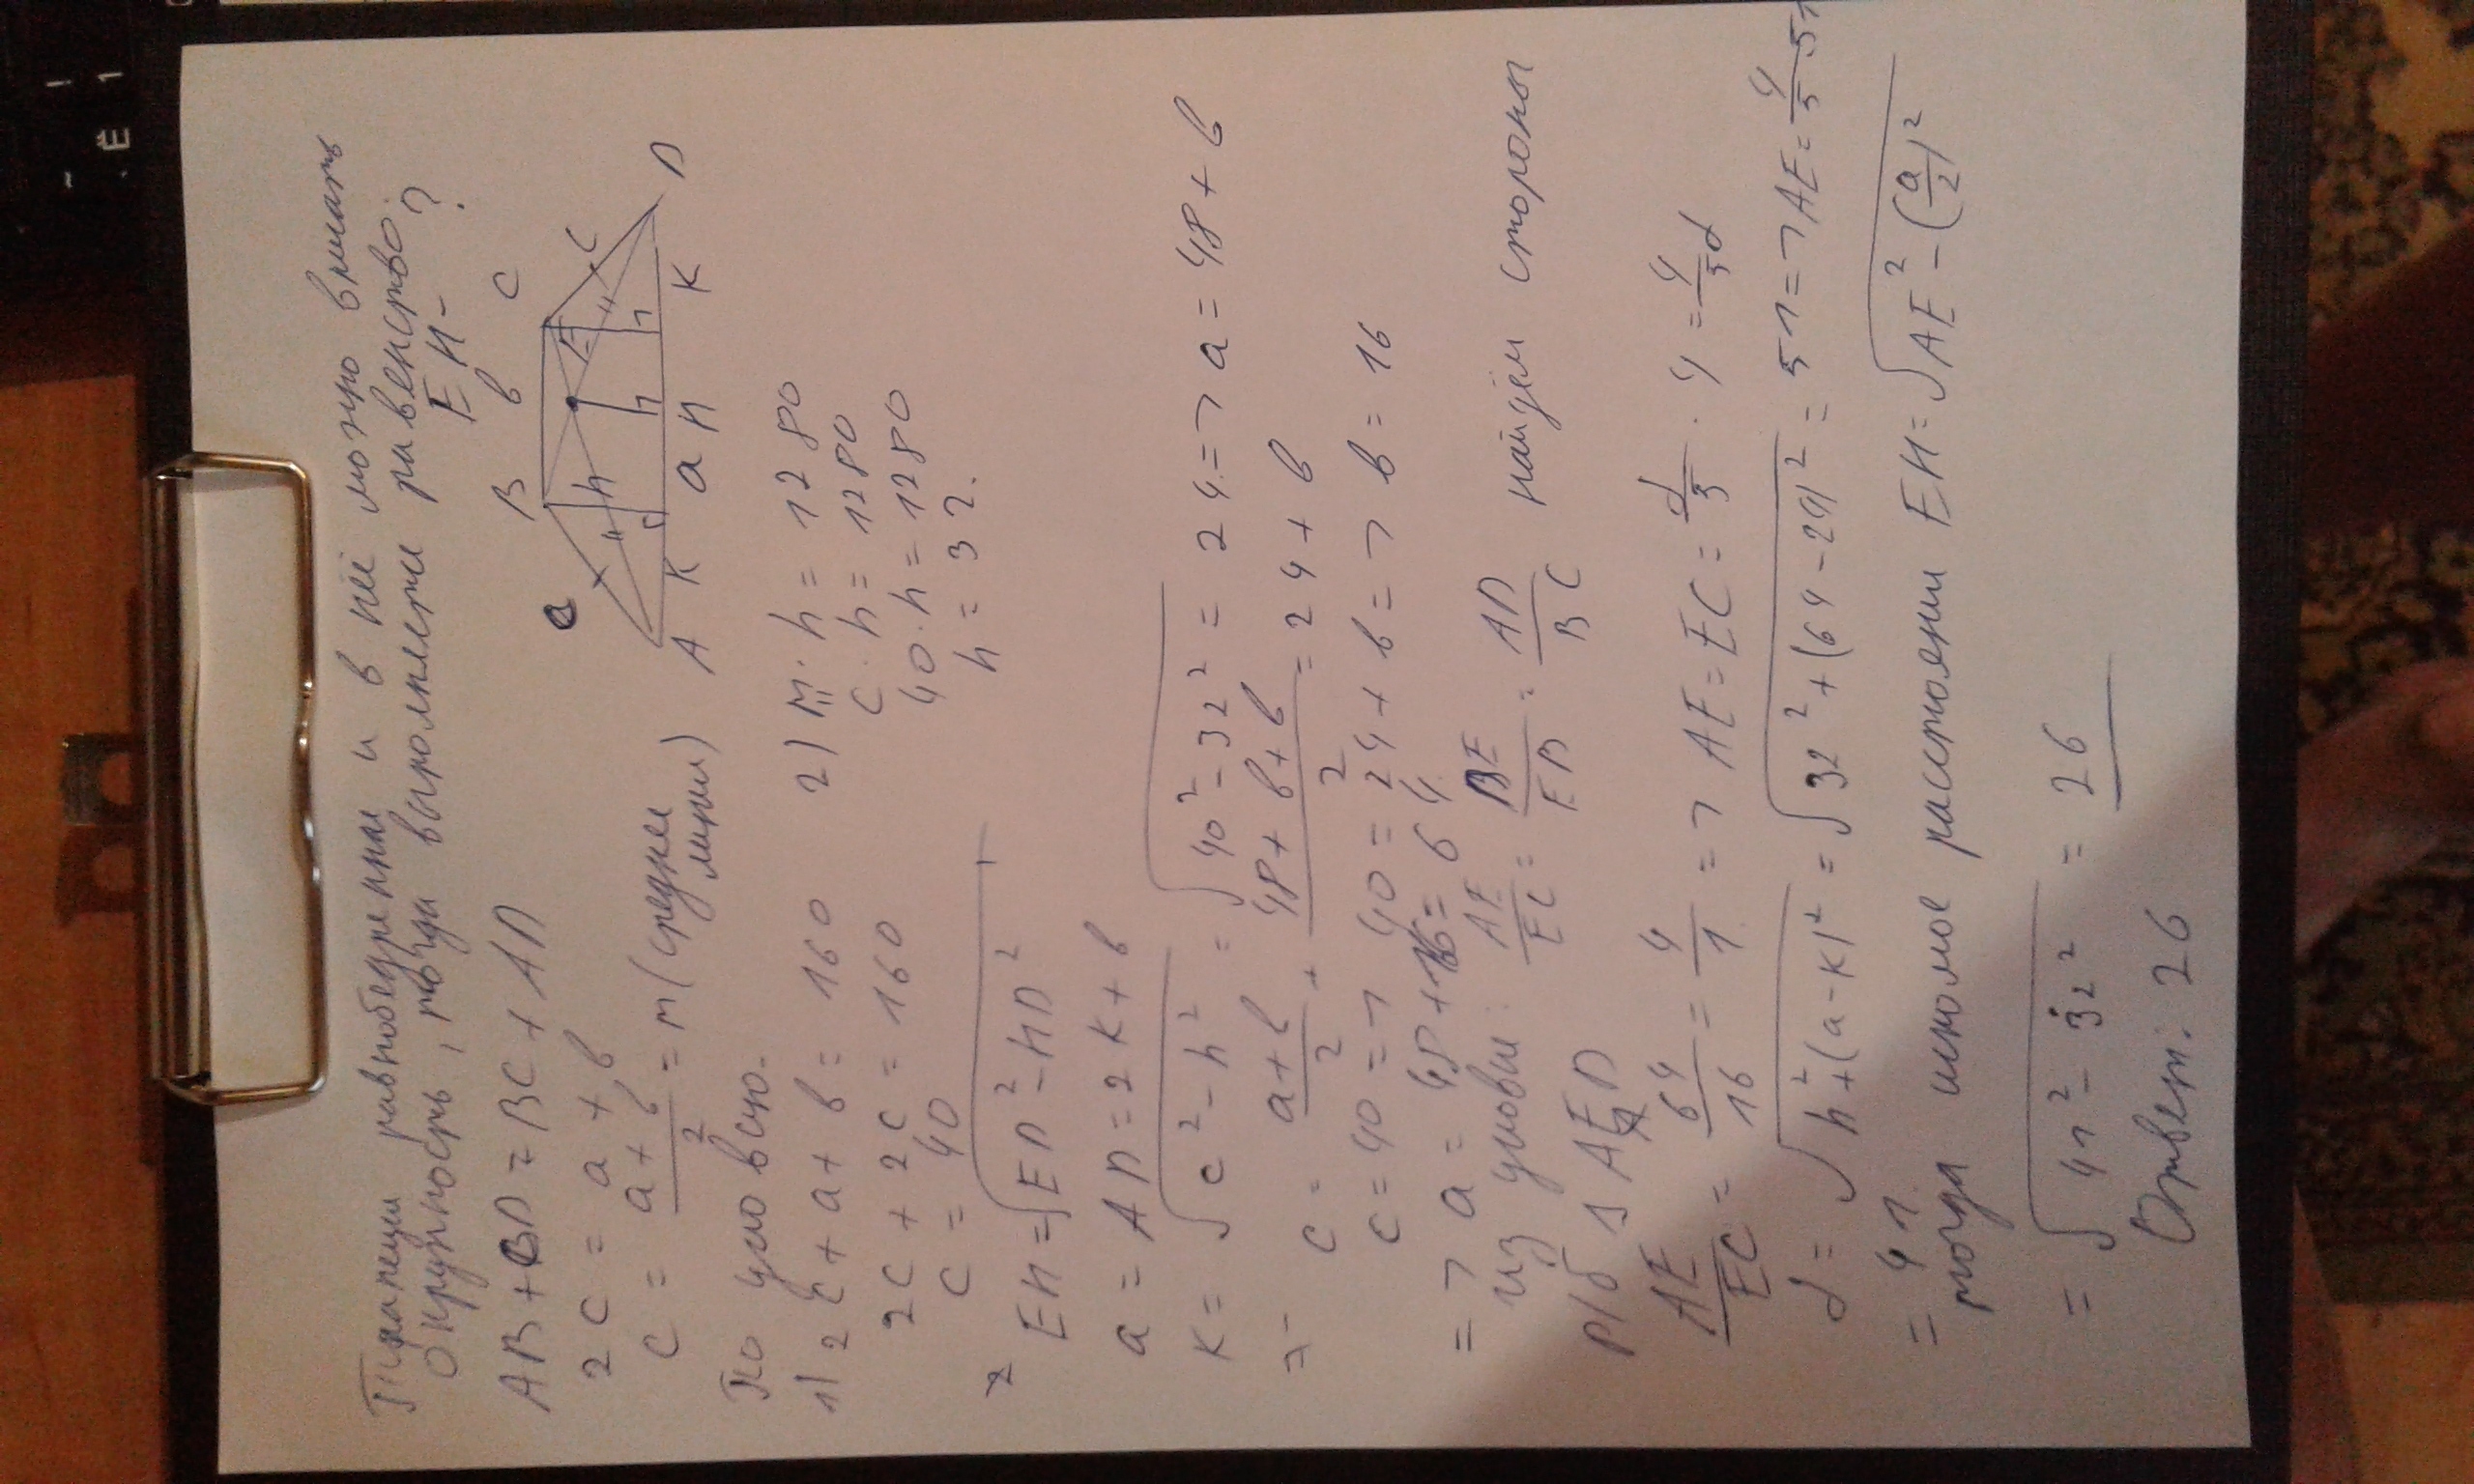 Трапеция равнобедренная и в неё можно вписать
окружность, тогда выполняется равенство.
EH - ?
AB + CD = BC + AD
B b C
c
h
E
c
h h
A K a H K D
2c = a + b
c = \frac{a+b}{2} = m (средняя линия)
По условию.
1) 2c + a + b = 160
2c + 2c = 160
c = 40
2) m · h = 1280
c · h = 1280
40 · h = 1280
h = 32.
EH = \sqrt{ED^2 - HD^2}
a = AD = 2K + b
K = \sqrt{c^2 - h^2} = \sqrt{40^2 - 32^2} = 24 => a = 48 + b
=> c = \frac{a+b}{2} + \frac{48 + b + b}{2} = 24 + b
c = 40 => 40 = 24 + b => b = 16
=> a = 48 + 16 = 64
из условия: \frac{AE}{EC} = \frac{BE}{ED} = \frac{AD}{BC} найдём стороны
р/б Δ AED
\frac{AE}{EC} = \frac{64}{16} = \frac{4}{1} => AE = EC = \frac{d}{5} · 4 = \frac{4}{5}d
d = \sqrt{h^2 + (a-K)^2} = \sqrt{32^2 + (64-24)^2} = 51 => AE = \frac{4}{5} 51
= 41
тогда искомое расстояние EH = \sqrt{AE^2 - (\frac{a}{2})^2}
= \sqrt{41^2 - 32^2} = 26
Ответ: 26
~ !
Ё 1